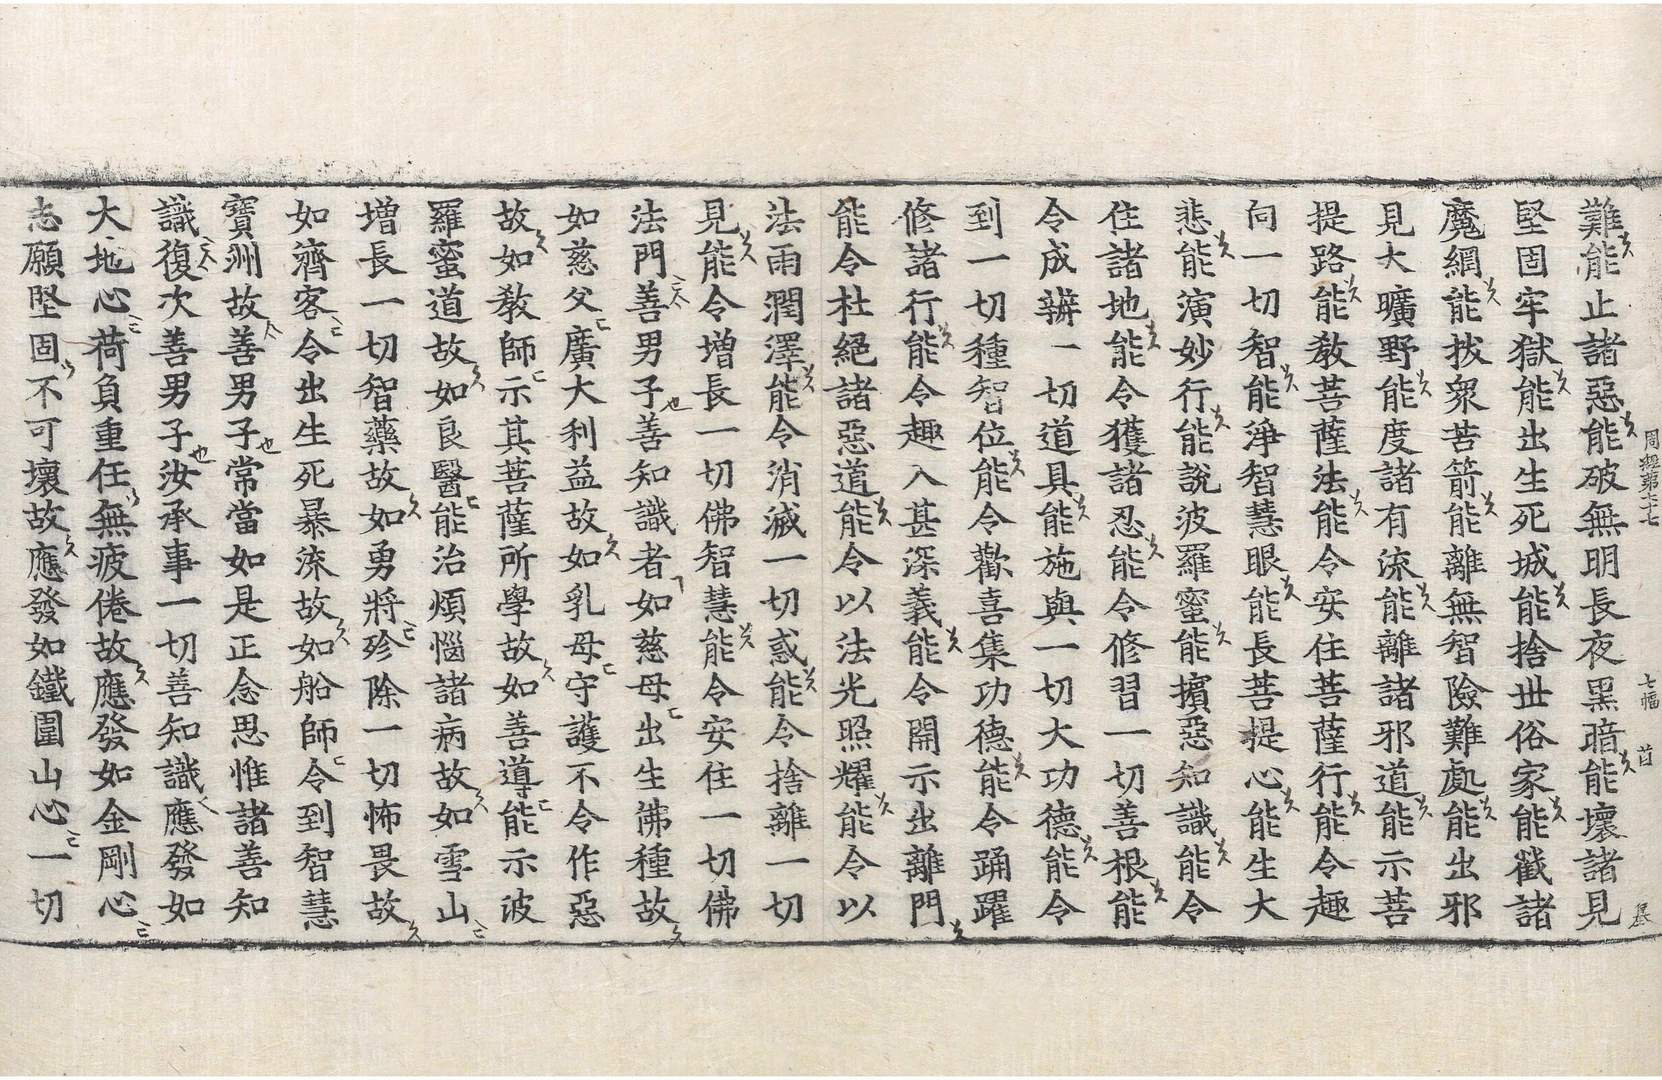 難能止諸惡能破無明長夜黑暗能壞諸見
堅固牢獄能出生死城能捨世俗家能截諸
魔網能拔衆苦箭能離無智險難處能出邪
見大曠野能度諸有流能離諸邪道能示菩
提路能教菩薩法能令安住菩薩行能令趣
向一切智能淨智慧眼能長菩提心能生大
悲能演妙行能說波羅蜜能擯惡知識能令
住諸地能令獲諸忍能令修習一切善根能
令成辦一切道具能施與一切大功德能令
到一切種智位能令歡喜集功德能令踊躍
修諸行能令趣入甚深義能令開示出離門
能令杜絕諸惡道能令以法光照耀能令以
法雨潤澤能令消滅一切惑能令捨離一切
見能令增長一切佛智慧能令安住一切佛
法門善男子善知識者如慈母出生佛種故
如慈父廣大利益故如乳母守護不令作惡
故如教師示其菩薩所學故如善導能示波
羅蜜道故如良醫能治煩惱諸病故如雪山
增長一切智藥故如勇將殄除一切怖畏故
如濟客令出生死暴流故如船師令到智慧
寶洲故善男子常當如是正念思惟諸善知
識復次善男子汝承事一切善知識應發如
大地心荷負重任無疲倦故應發如金剛心
志願堅固不可壞故應發如鐵圍山心一切
周經第七十七
七幅